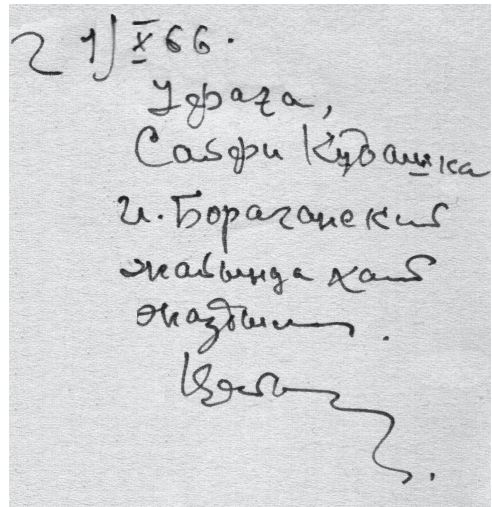 21) X 66.
Уфаға,
Сайфи Кудашка
И. Бораганский
жайында хат
жаздым.